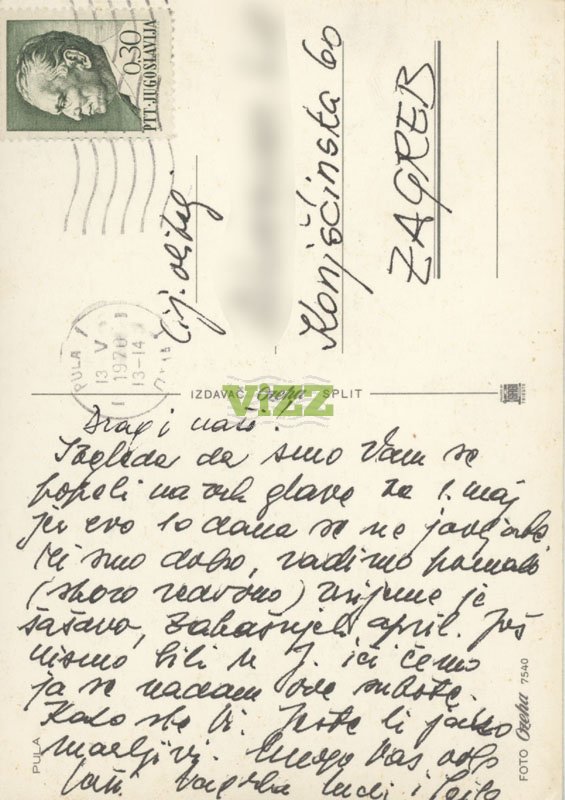 0.30
PTT-JUGOSLAVIJA
PULA 1
13 V
1970
13-14
Cij. obitelj
Konjšćinska 60
ZAGREB
IZDAVAČ Ozeha SPLIT
VIZZ
Dragi naši!
Izgleda da smo Vam se
popeli na vrh glave za 1. maj
jer evo 10 dana se ne javljate
Mi smo dobro, radimo pomalo
(skoro redovno) vrijeme je
šašavo, zakašnjeli april. Još
nismo bili u J. ići ćemo
ja se nadam ove subote.
Kako ste Vi. Jeste li jako
marljivi. Mnogo Vas vole
Vaši
PULA
FOTO Ozeha 7540